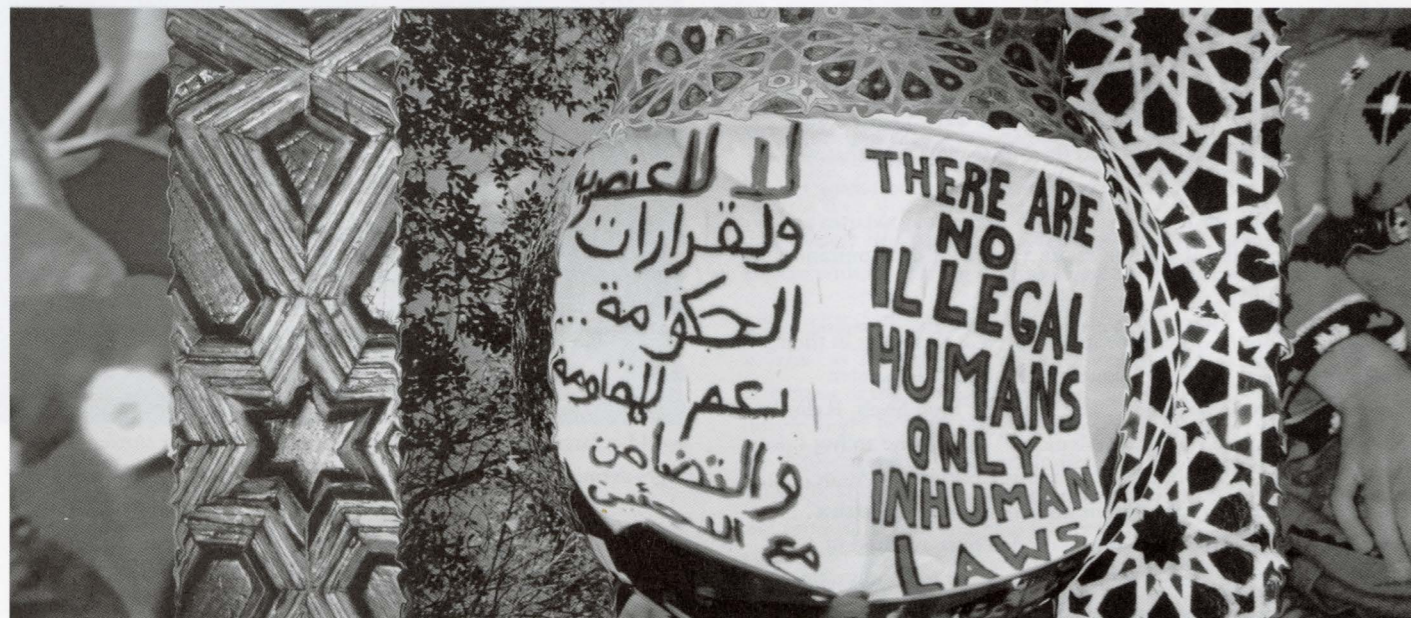 لا للعنصرية
ولقرارات
الحكومة ..
نعم للمقاومة
والتضامن
مع اللاجئين
THERE ARE
NO
ILLEGAL
HUMANS
ONLY
INHUMAN
LAWS